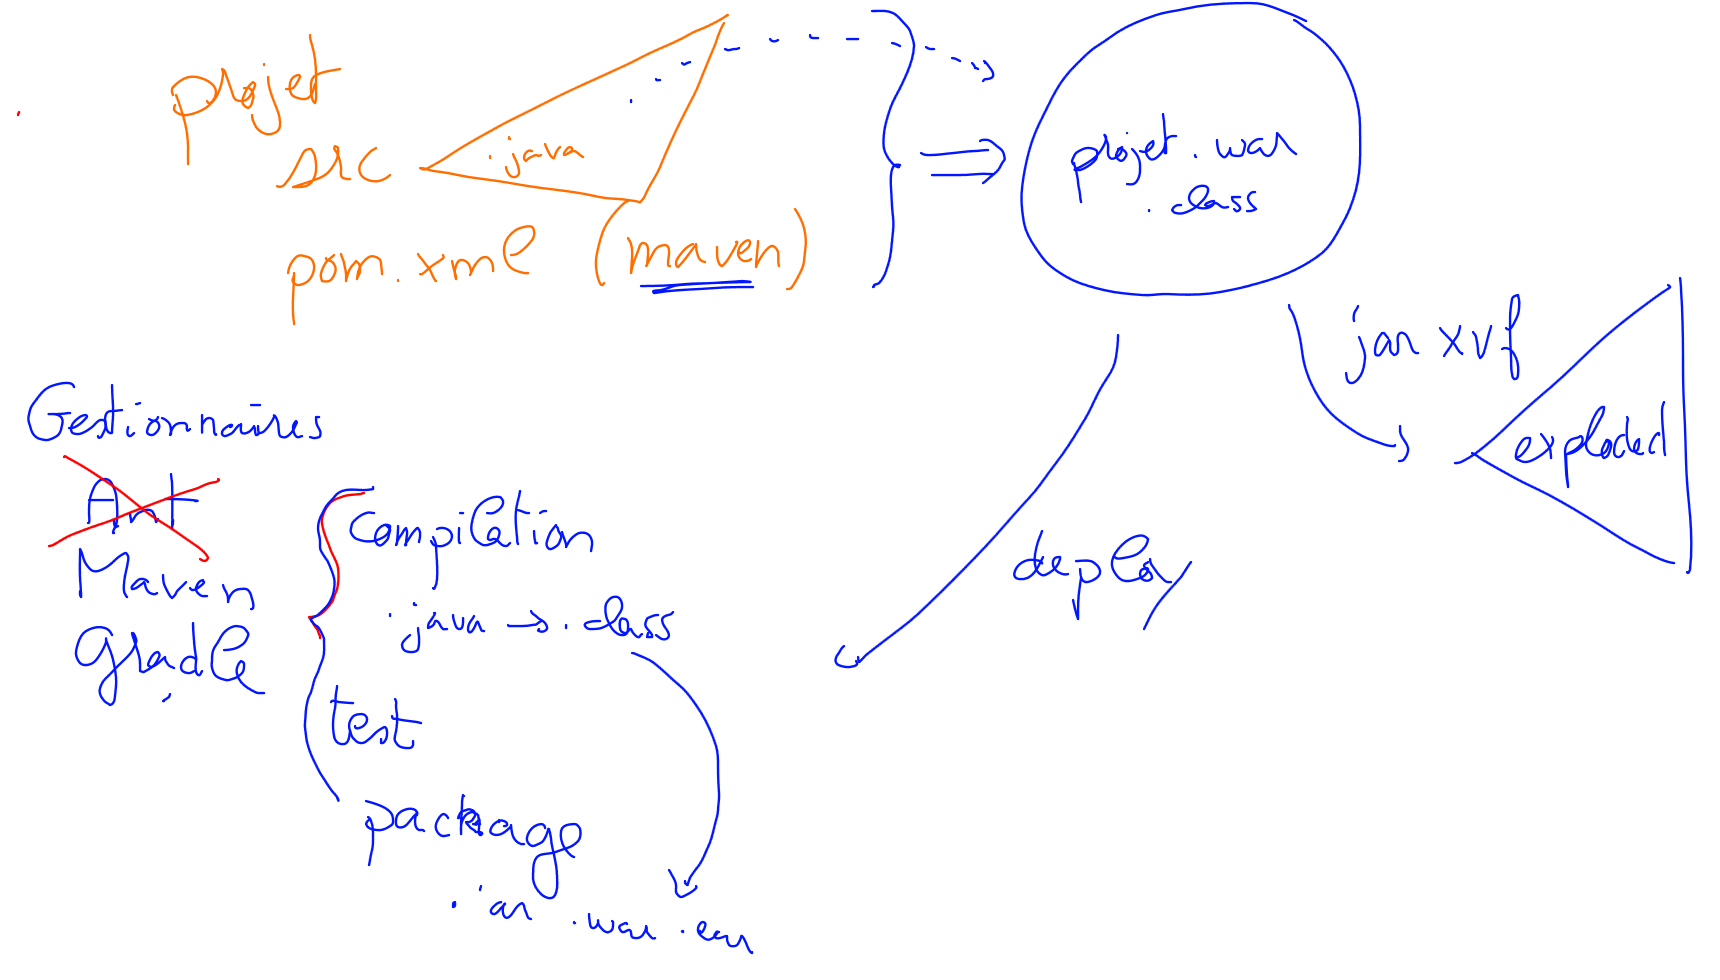 projet
src .java
pom.xml (maven)
projet.war
.class
jar xvf
exploded
deploy
Gestionnaires
Ant
Maven
gradle
compilation
.java → .class
test
package
.jar .war .ear